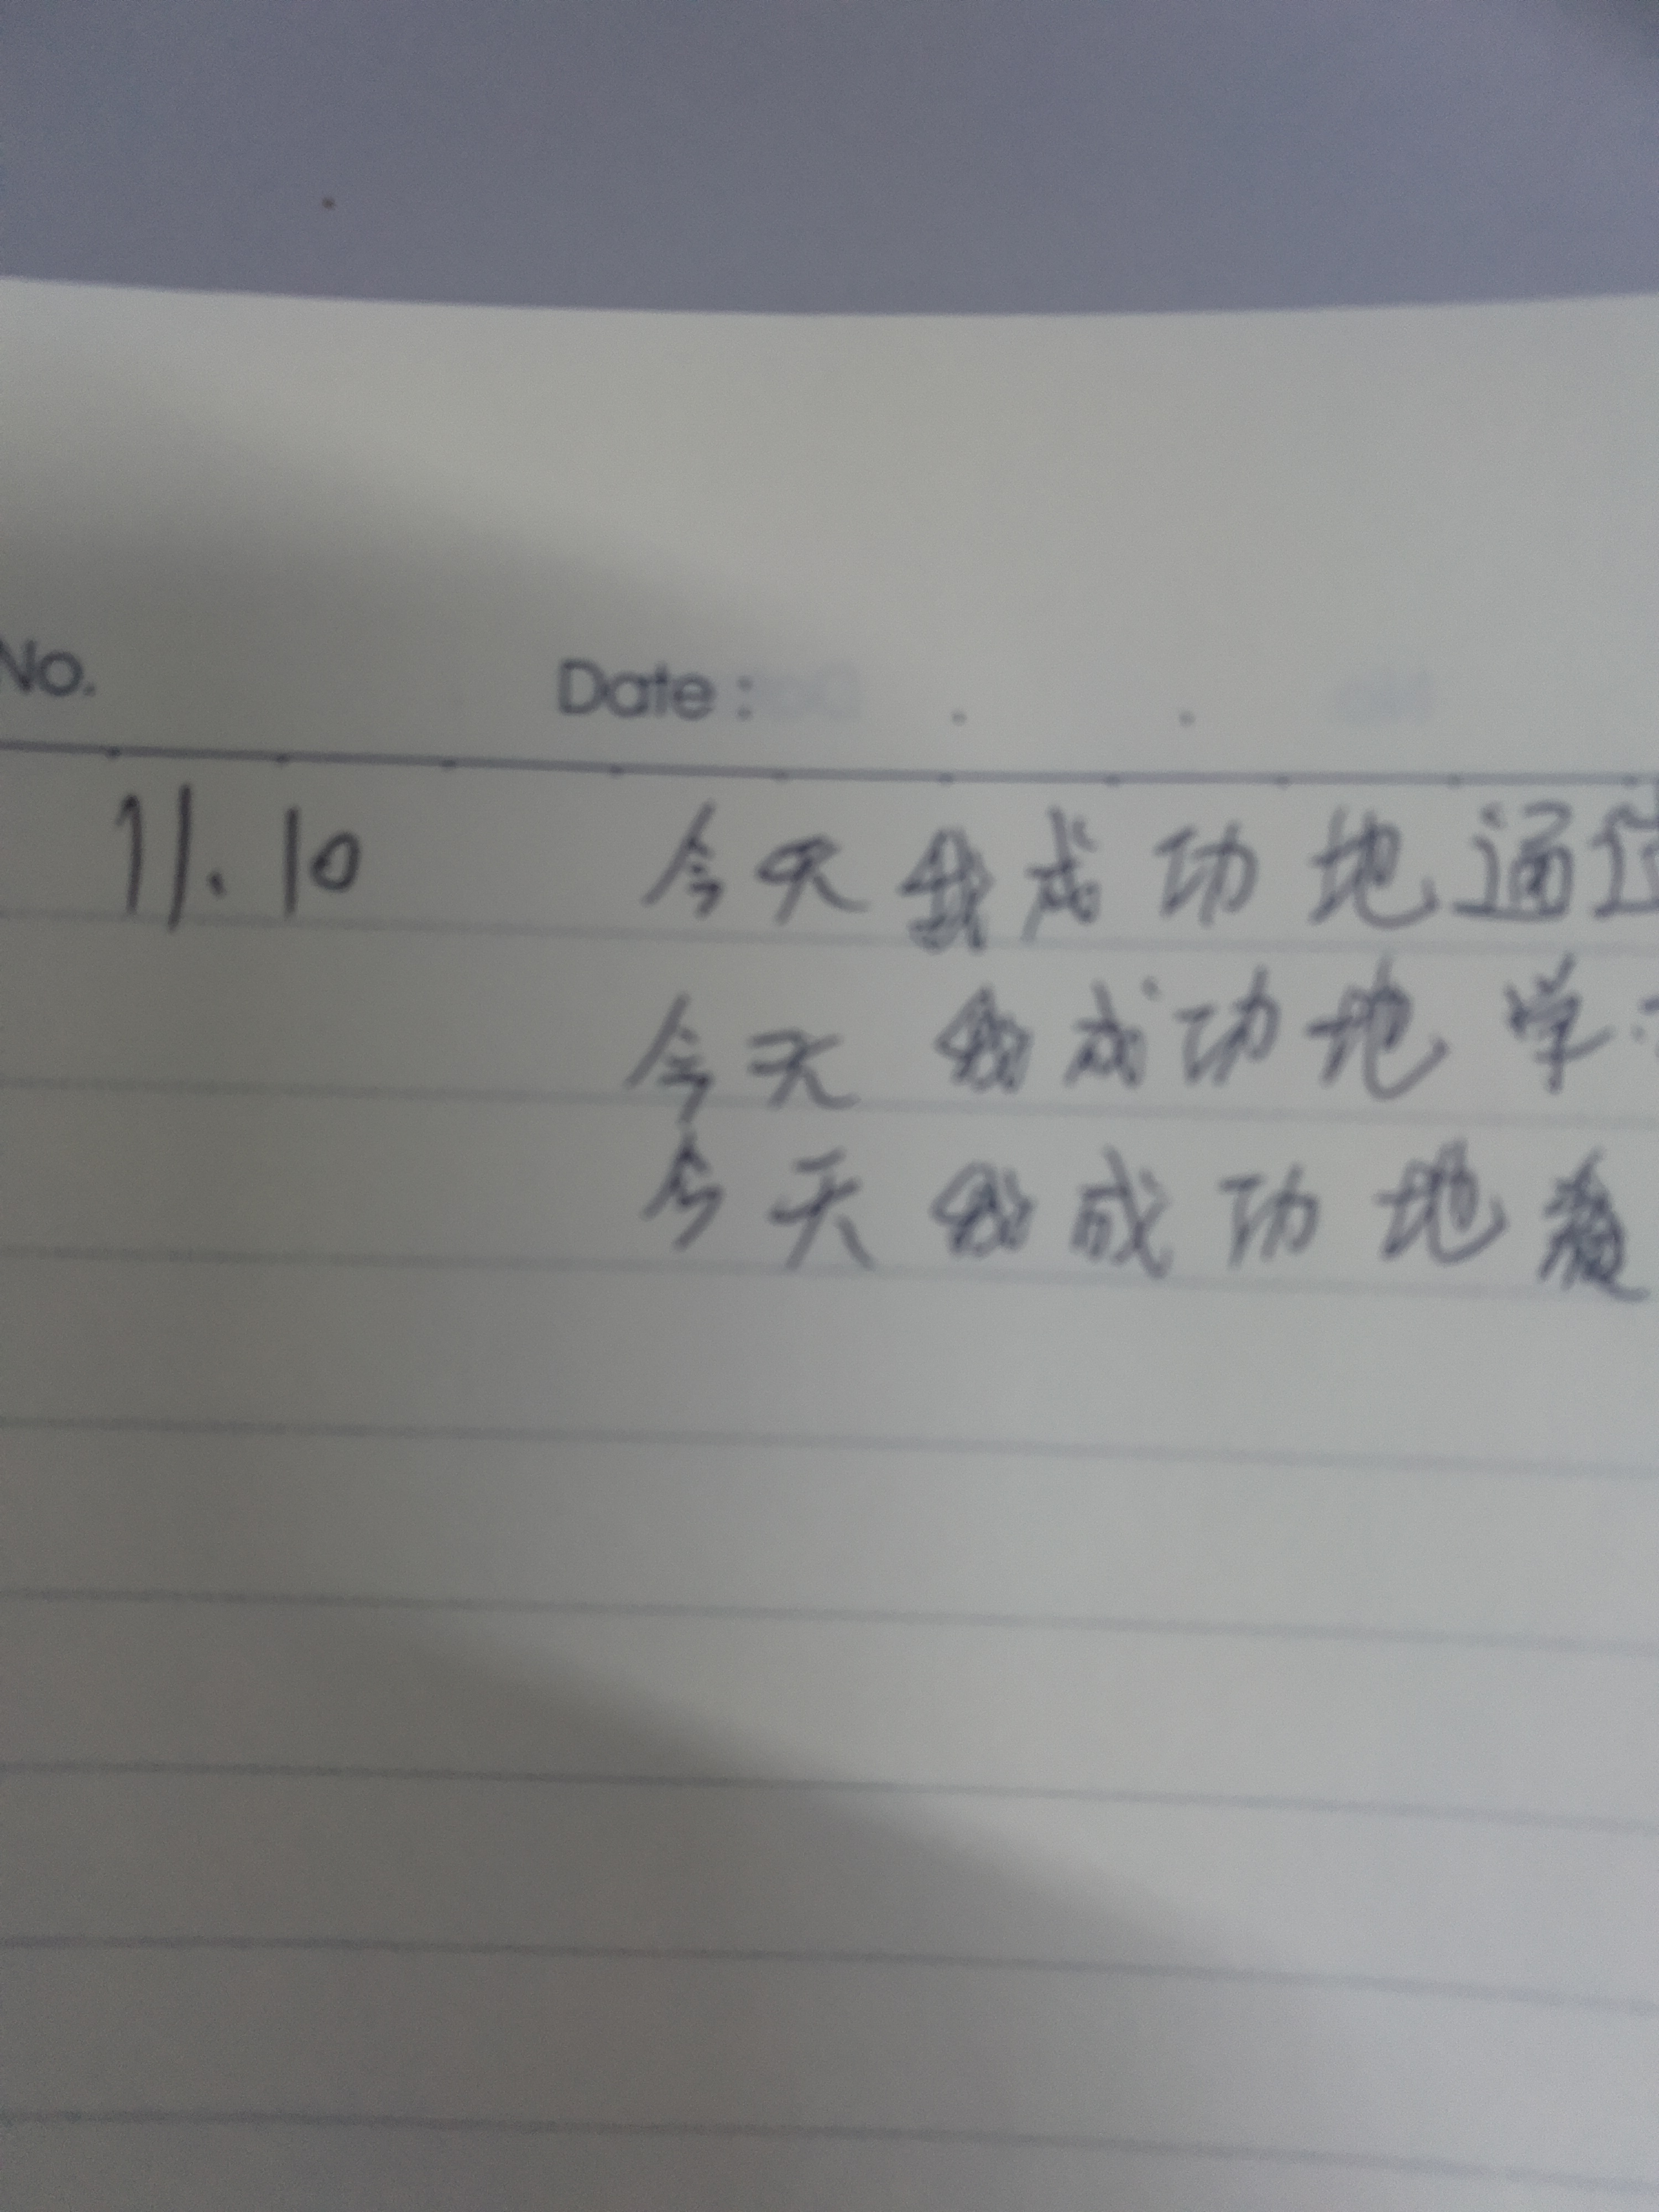 No. Date :
11.10 今天我成功地通过
今天我成功地学
今天我成功地